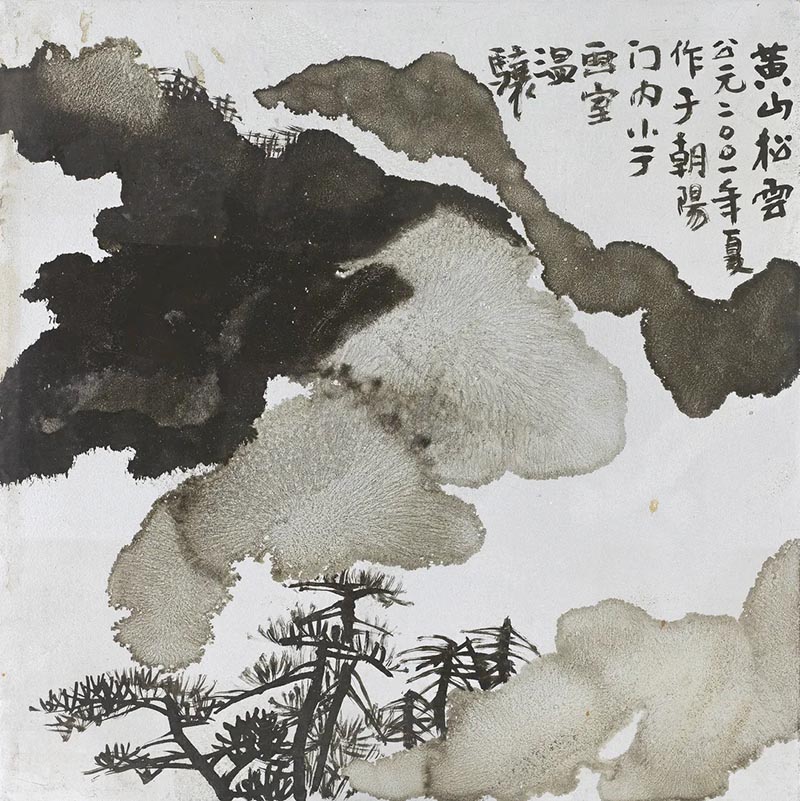 黄山松雲
公元二〇〇一年夏
作于朝陽
门内小亍
画室
温
驤